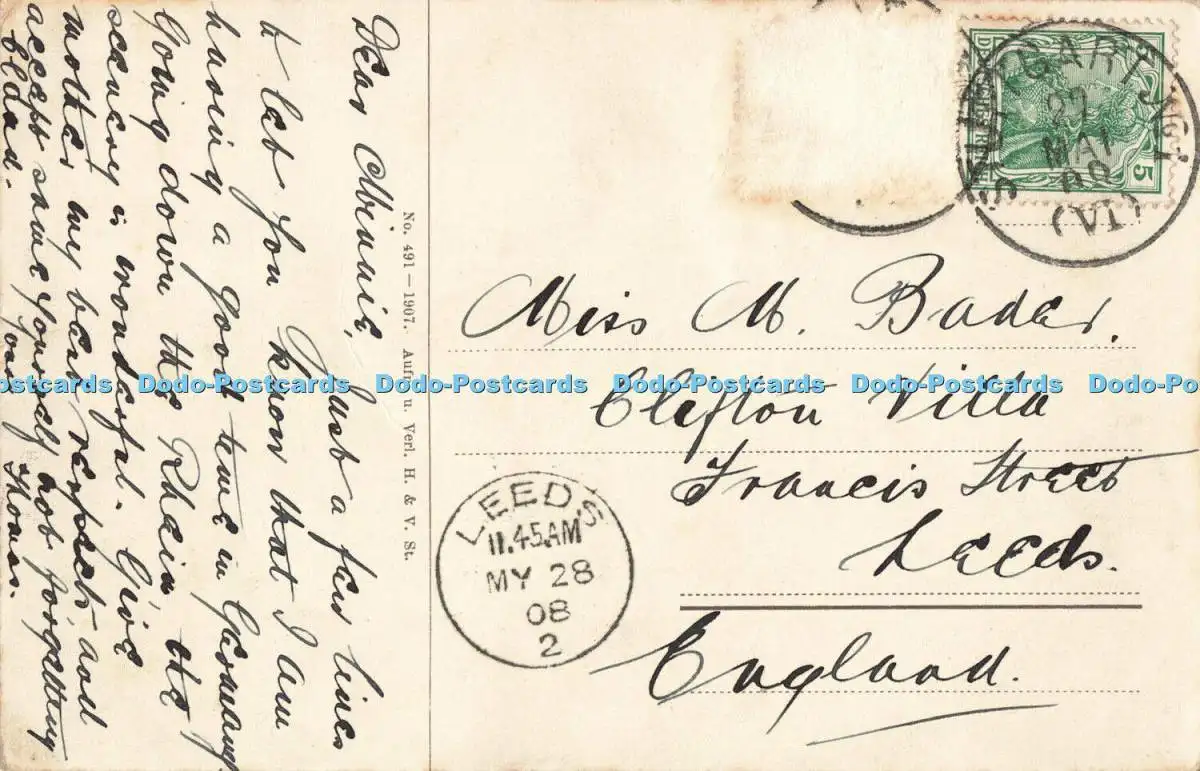 Dear Minnie,
Just a few lines
to let you know that I am
having a good time in Germany
Going down the Rhein, the
scenery is wonderful. Give
mother my best respects, and
accept same yourself not forgetting
Clda. Yours,
Thomas.
No. 491 — 1907. Aufn. u. Verl. H. & V. St.
STUTTGART
27
MAI
08
(VI)
5
Miss M. Bader.
Clifton Villa
Francis Street
Leeds.
England.
LEEDS
11.45AM
MY 28
08
2
Dodo-Postcards Dodo-Postcards Dodo-Postcards Dodo-Postcards Dodo-Postcards Dodo-Postcards